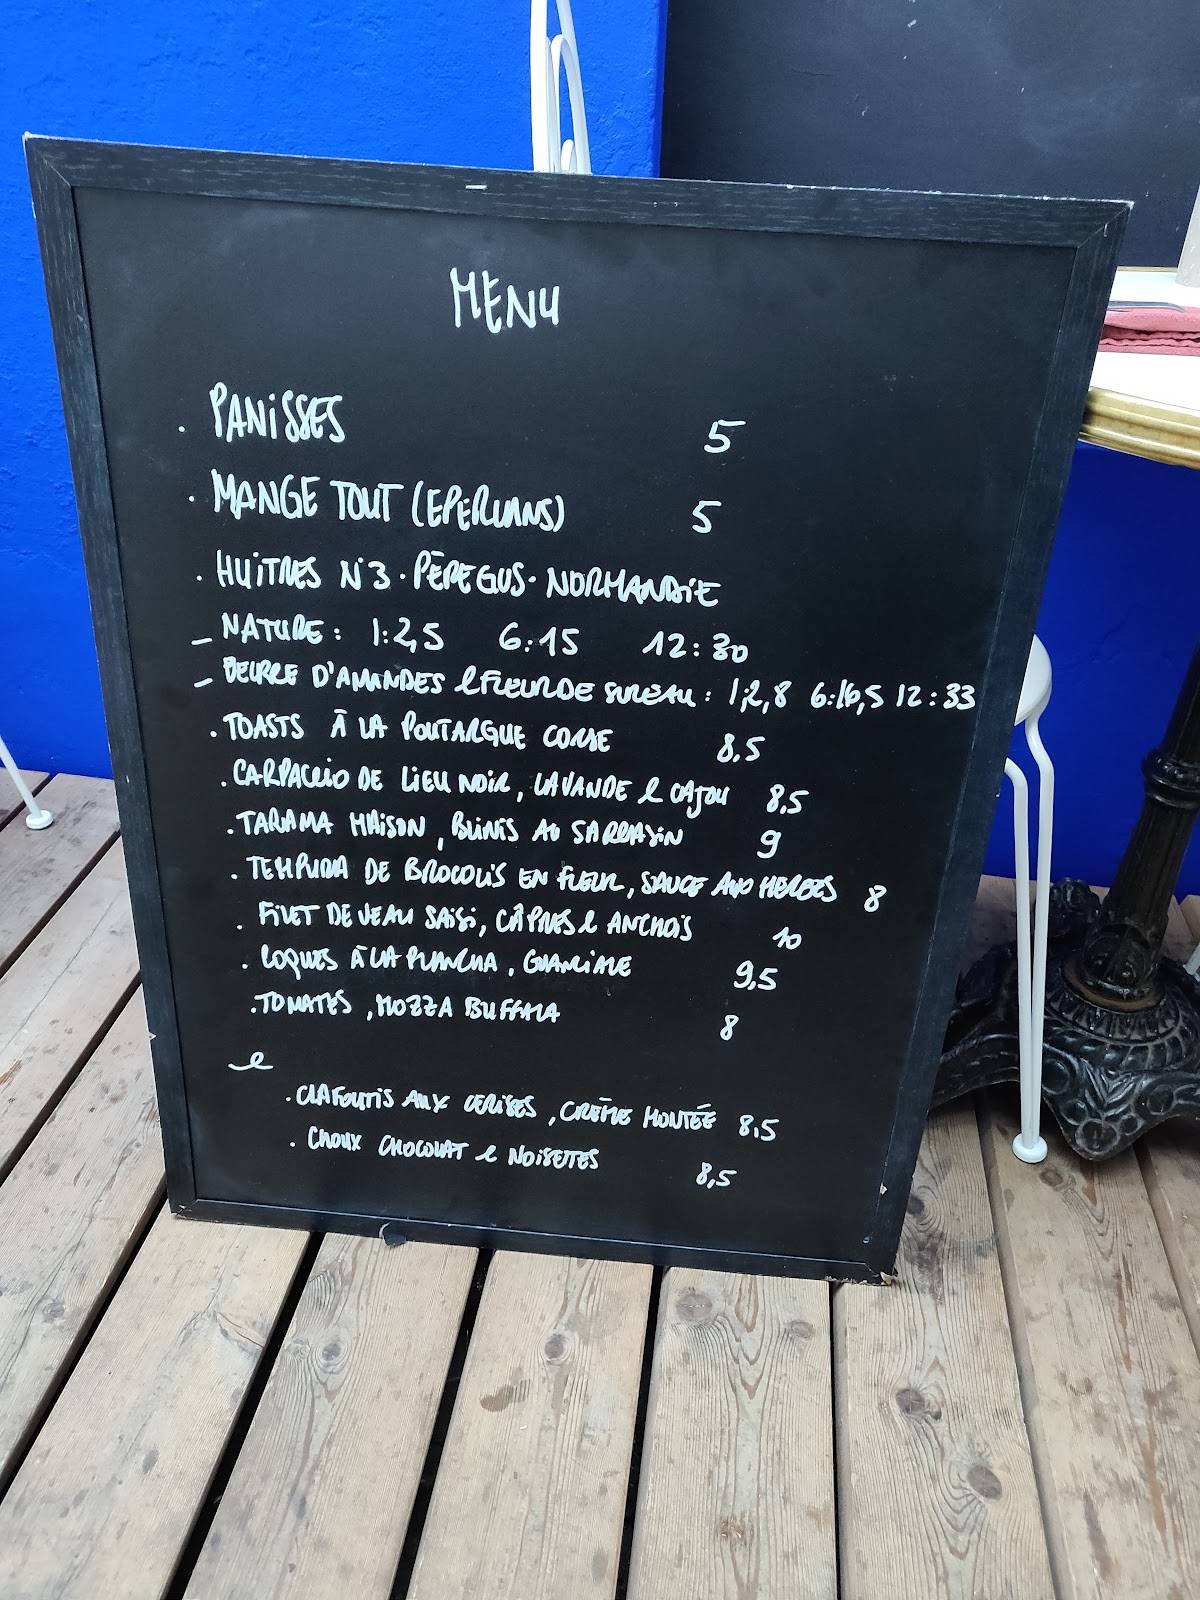 MENU
. PANISSES 5
. MANGE TOUT (EPERLANS) 5
. HUITRES N°3 . PÈRE GUS . NORMANDIE
- NATURE : 1:2,5 6:15 12:30
- BEURRE D'AMANDES & FLEUR DE SUREAU : 1:2,8 6:16,5 12:33
. TOASTS À LA POUTARGUE CORSE 8,5
. CARPACCIO DE LIEU NOIR, LAVANDE & CAJOU 8,5
. TARAMA MAISON, BLINIS AU SARRASIN 9
. TEMPURA DE BROCOLIS EN FLEUR, SAUCE AYO HERBES 8
. FILET DE VEAU SAISI, CÂPRES & ANCHOIS 10
. COQUES À LA PLANCHA, GUANCIALE 9,5
. TOMATES, MOZZA BUFFALA 8
&
. CLAFOUTIS AUX CERISES, CRÈME MONTÉE 8,5
. CHOUX CHOCOLAT & NOISETTES 8,5